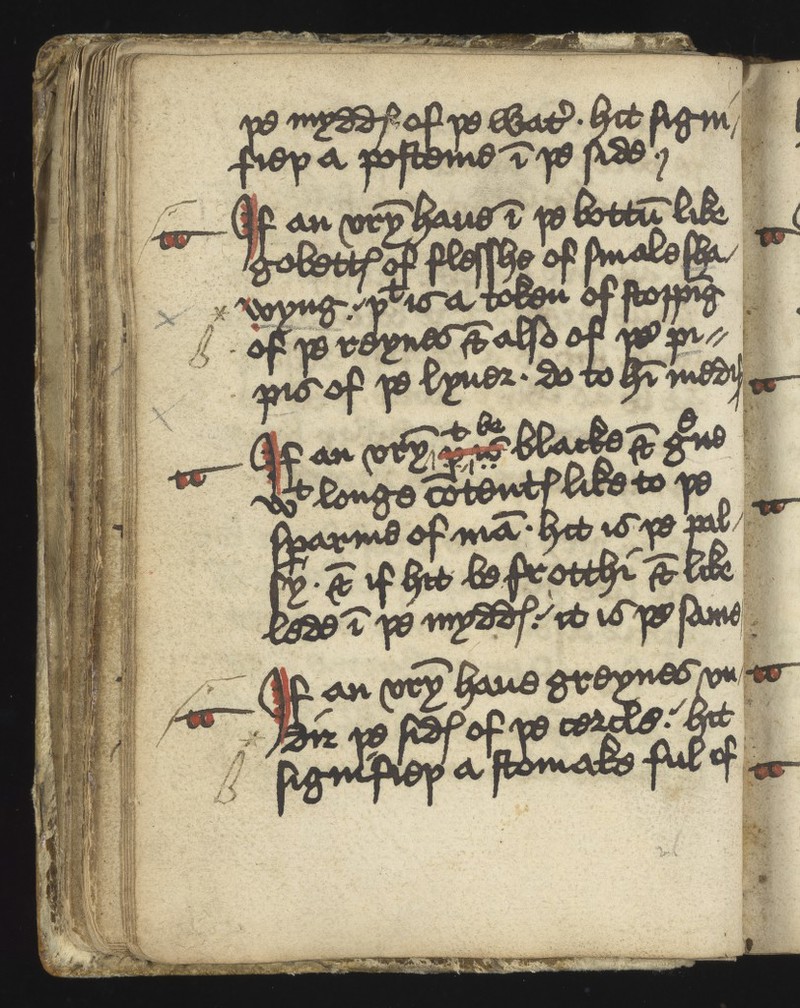 þe myddꝭ of þe wat᷑ · hit signi/
fieþ a posteme ī þe side ·/
If an vrȳ haue ī þe bottū like
gobettꝭ of flesshe of smale sha/
wyng :/ þᵗ is a token of stoppīg
of þe reynes & also of þe pi//
pis of þe lyuer · do to hī medi//
If an vrȳ þᵗ be blacke & gᵉne
wᵗ longe cōtentꝭ like to þe
sparme of mā · hit is þe pal/
sy · & if hit be frotthi & like
lede ī þe myddꝭ :/ it is þe same
If an vrȳ haue greynes vn/
dir þe sidꝭ of þe cercle :/ hit
signifieþ a stomake ful of